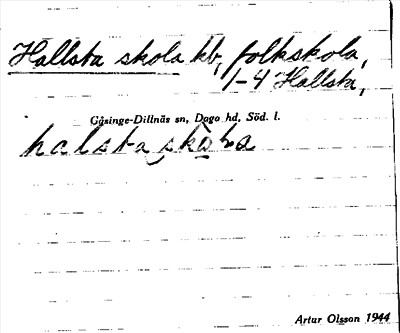 Hallsta skola kb, folkskola,
1-4 Hallsta,
Gåsinge-Dillnäs sn, Dago hd, Söd. l.
halsta
Artur Olsson 1944